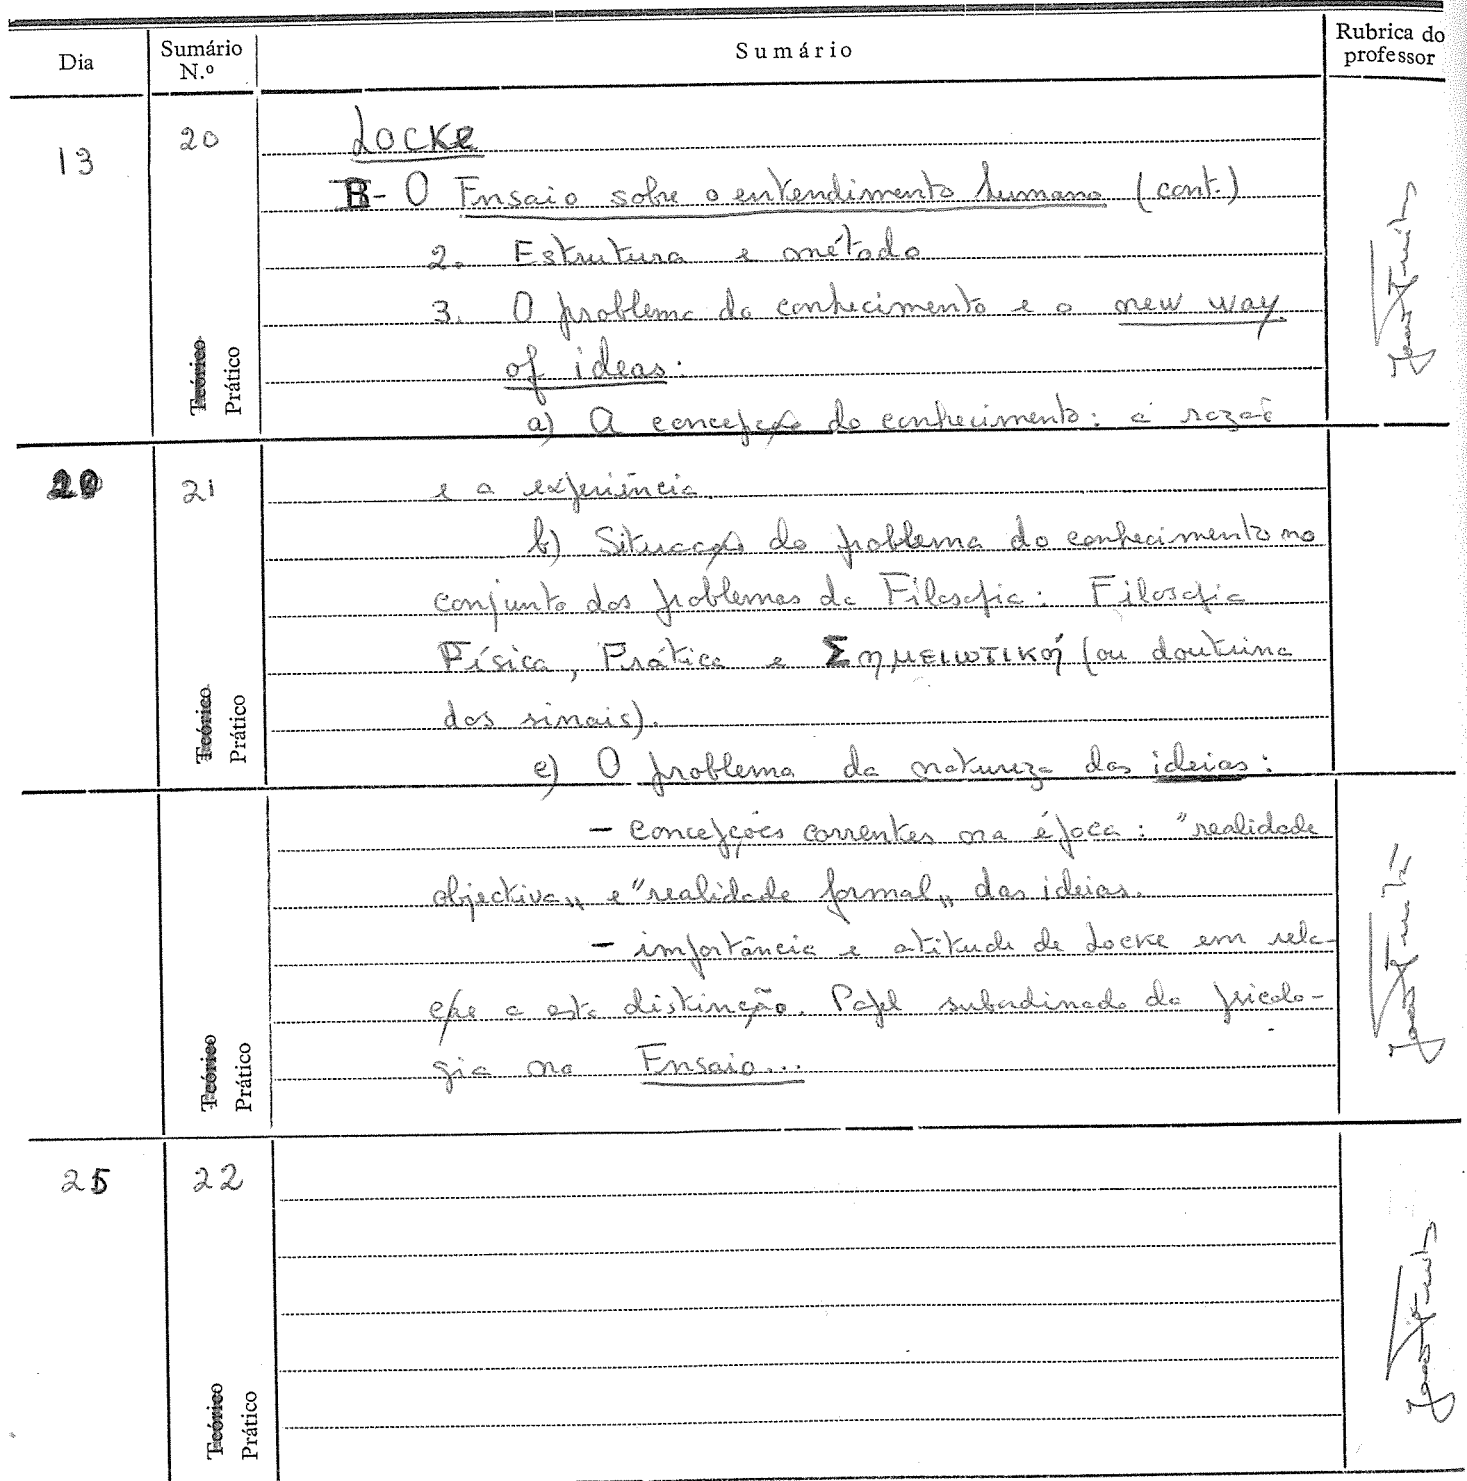 Dia Sumário N.º Sumário Rubrica do professor
13 20 Locke
B- O Ensaio sobre o entendimento humano (cont.)
2. Estrutura e método
3. O problema do conhecimento e o new way
of ideas.
Teórico Prático
a) A concepção do conhecimento: a razão
20 21 e a experiência.
b) Situação do problema do conhecimento no
conjunto dos problemas da Filosofia: Filosofia
Física, Prática e Σημειωτική (ou doutrina
dos sinais).
Teórico Prático
c) O problema da natureza das ideias:
- concepções correntes na época: "realidade
objectiva„ e "realidade formal„ das ideias.
- importância e atitude de Locke em rela-
ção a esta distinção. Papel subordinado da psicolo-
gia no Ensaio...
Teórico Prático
25 22
Teórico Prático